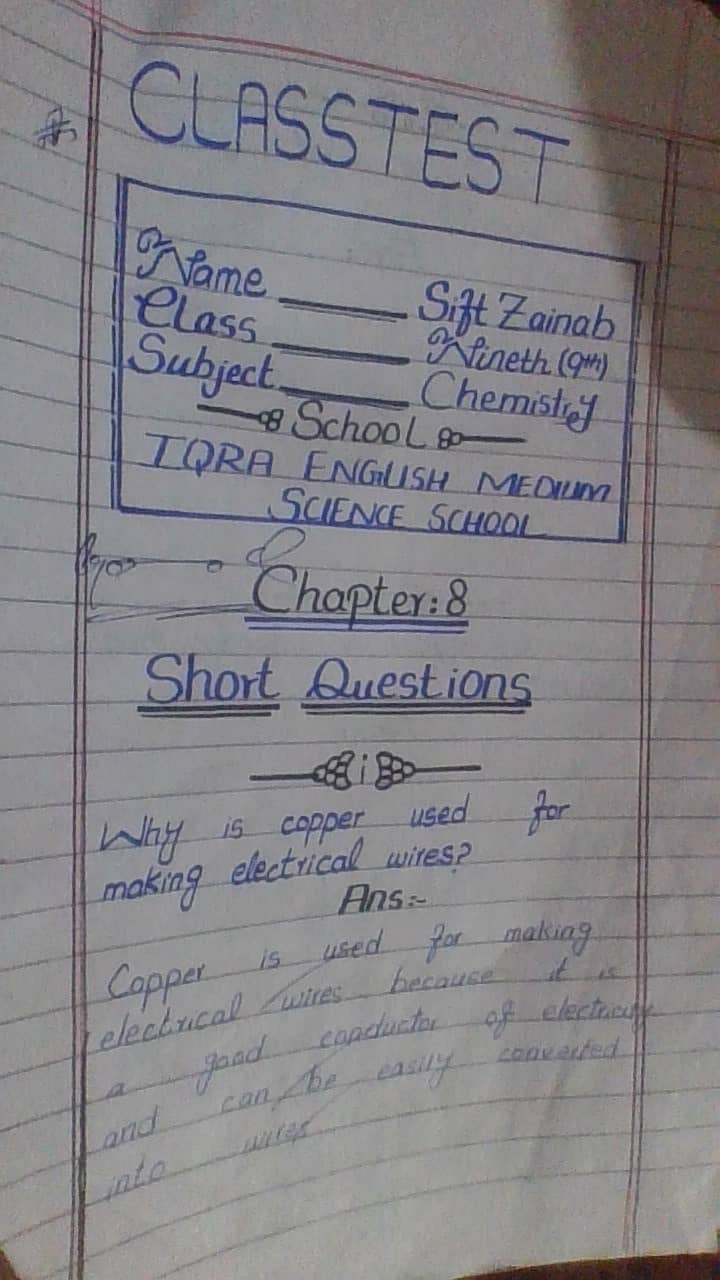 CLASS TEST
Name ____ Sift Zainab
Class ____ Nineth (9th)
Subject ____ Chemistry
School
IQRA ENGLISH MEDIUM
SCIENCE SCHOOL
Chapter: 8
Short Questions
i
Why is copper used for
making electrical wires?
Ans:-
Copper is used for making
electrical wires because it is
a good conductor of electricity
and can be easily converted
into wires